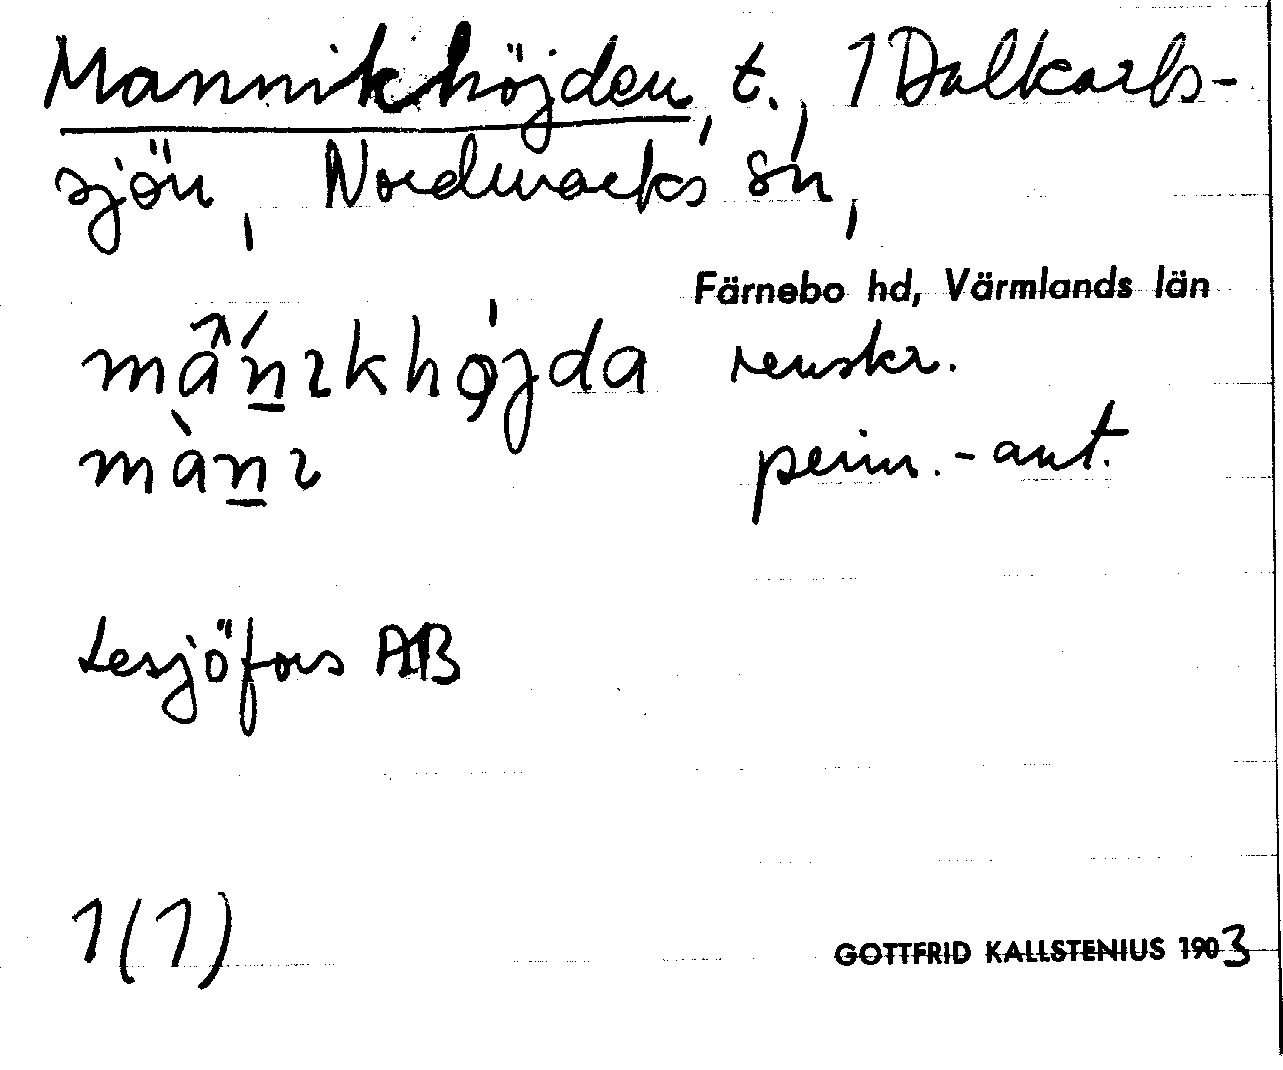 Mannikhöjden, t., 1 Dalkarls-
sjön, Nordmarks sn,
Färnebo hd, Värmlands län
renskr.
penn.-ant.
Lesjöfors AB
1(1)
GOTTFRID KALLSTENIUS 1903